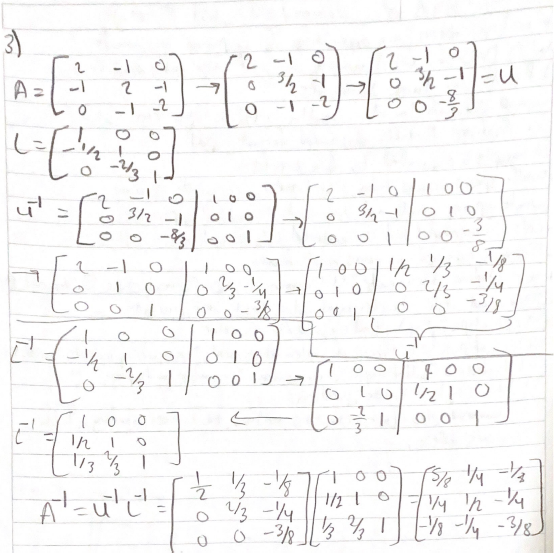 3)
A = [2 -1 0; -1 2 -1; 0 -1 -2] → [2 -1 0; 0 3/2 -1; 0 -1 -2] → [2 -1 0; 0 3/2 -1; 0 0 -8/3] = U
L = [1 0 0; -1/2 1 0; 0 -2/3 1]
U⁻¹ = [2 -1 0 | 1 0 0; 0 3/2 -1 | 0 1 0; 0 0 -8/3 | 0 0 1] → [2 -1 0 | 1 0 0; 0 3/2 -1 | 0 1 0; 0 0 1 | 0 0 -3/8]
→ [2 -1 0 | 1 0 0; 0 1 0 | 0 2/3 -1/4; 0 0 1 | 0 0 -3/8] → [1 0 0 | 1/2 1/3 -1/8; 0 1 0 | 0 2/3 -1/4; 0 0 1 | 0 0 -3/8]
U⁻¹
L⁻¹ = [1 0 0 | 1 0 0; -1/2 1 0 | 0 1 0; 0 -2/3 1 | 0 0 1] → [1 0 0 | 1 0 0; 0 1 0 | 1/2 1 0; 0 -2/3 1 | 0 0 1]
←
L⁻¹ = [1 0 0; 1/2 1 0; 1/3 2/3 1]
A⁻¹ = U⁻¹ L⁻¹ = [1/2 1/3 -1/8; 0 2/3 -1/4; 0 0 -3/8] [1 0 0; 1/2 1 0; 1/3 2/3 1] = [5/8 1/4 -1/8; 1/4 1/2 -1/4; -1/8 -1/4 -3/8]